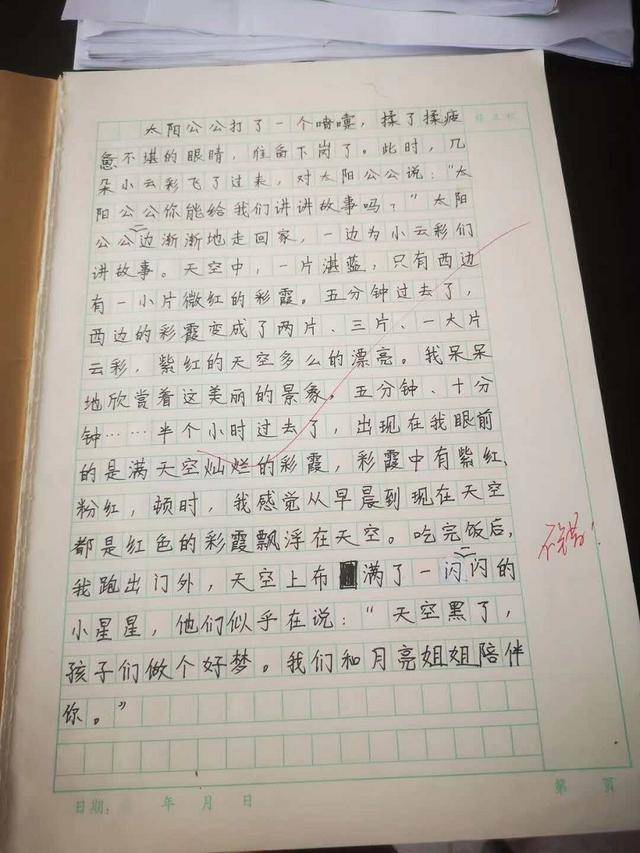 太阳公公打了一个喷嚏，揉了揉疲
惫不堪的眼睛，准备下岗了。此时，几
朵小云彩飞了过来，对太阳公公说："太
阳公公你能给我们讲讲故事吗？"太阳
公公边渐渐地走回家，一边为小云彩们
讲故事。天空中，一片湛蓝，只有西边
有一小片微红的彩霞。五分钟过去了，
西边的彩霞变成了两片、三片、一大片
云彩，紫红的天空多么的漂亮。我呆呆
地欣赏着这美丽的景象。五分钟、十分
钟……半个小时过去了，出现在我眼前
的是满天空灿烂的彩霞，彩霞中有紫红，
粉红，顿时，我感觉从早晨到现在天空
都是红色的彩霞飘浮在天空。吃完饭后，
我跑出门外，天空上布满了一闪闪的
小星星，他们似乎在说："天空黑了，
孩子们做个好梦。我们和月亮姐姐陪伴
你。"
不错！
日期： 年 月 日
第 页